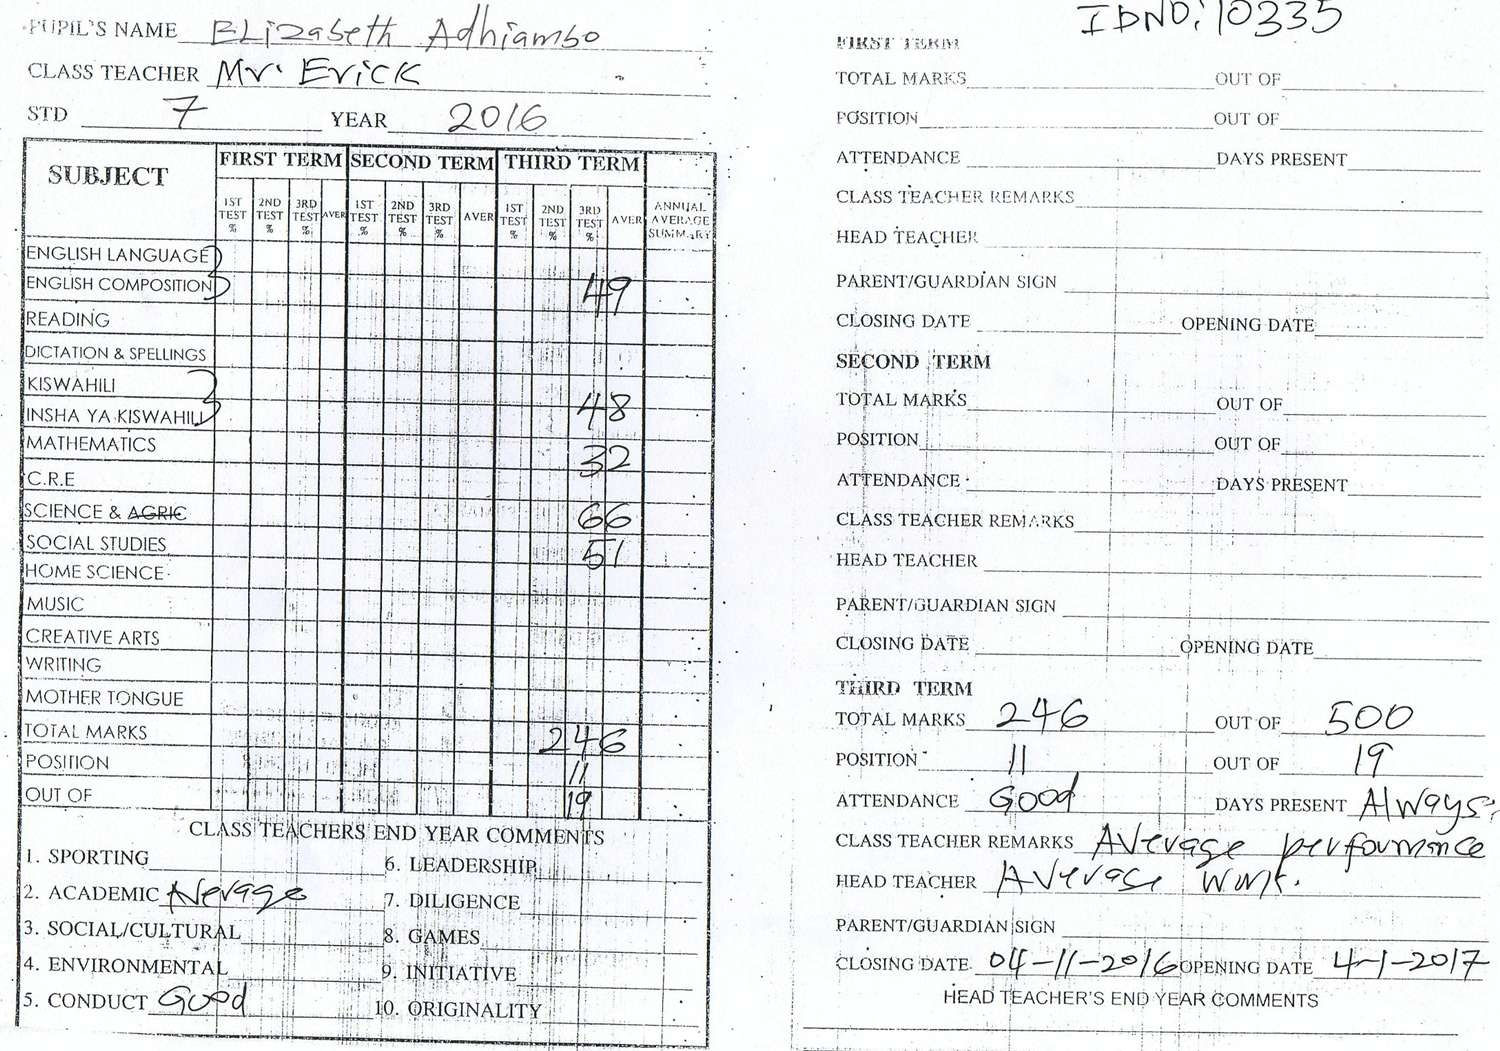 PUPIL'S NAME ELizabeth Adhiambo
CLASS TEACHER Mr. Erick
STD 7 YEAR 2016
SUBJECT FIRST TERM SECOND TERM THIRD TERM
1ST TEST % 2ND TEST % 3RD TEST % AVER 1ST TEST % 2ND TEST % 3RD TEST % AVER 1ST TEST % 2ND TEST % 3RD TEST % AVER ANNUAL AVERAGE SUMMARY
ENGLISH LANGUAGE
ENGLISH COMPOSITION 49
READING
DICTATION & SPELLINGS
KISWAHILI
INSHA YA KISWAHILI 48
MATHEMATICS 32
C.R.E
SCIENCE & AGRIC 66
SOCIAL STUDIES 51
HOME SCIENCE
MUSIC
CREATIVE ARTS
WRITING
MOTHER TONGUE
TOTAL MARKS 246
POSITION 11
OUT OF 19
CLASS TEACHERS END YEAR COMMENTS
1. SPORTING 6. LEADERSHIP
2. ACADEMIC Average 7. DILIGENCE
3. SOCIAL/CULTURAL 8. GAMES
4. ENVIRONMENTAL 9. INITIATIVE
5. CONDUCT Good 10. ORIGINALITY
IDNO: 10335
FIRST TERM
TOTAL MARKS OUT OF
POSITION OUT OF
ATTENDANCE DAYS PRESENT
CLASS TEACHER REMARKS
HEAD TEACHER
PARENT/GUARDIAN SIGN
CLOSING DATE OPENING DATE
SECOND TERM
TOTAL MARKS OUT OF
POSITION OUT OF
ATTENDANCE DAYS PRESENT
CLASS TEACHER REMARKS
HEAD TEACHER
PARENT/GUARDIAN SIGN
CLOSING DATE OPENING DATE
THIRD TERM
TOTAL MARKS 246 OUT OF 500
POSITION 11 OUT OF 19
ATTENDANCE Good DAYS PRESENT Always
CLASS TEACHER REMARKS Average performance
HEAD TEACHER Average work.
PARENT/GUARDIAN SIGN
CLOSING DATE 04-11-2016 OPENING DATE 4-1-2017
HEAD TEACHER'S END YEAR COMMENTS